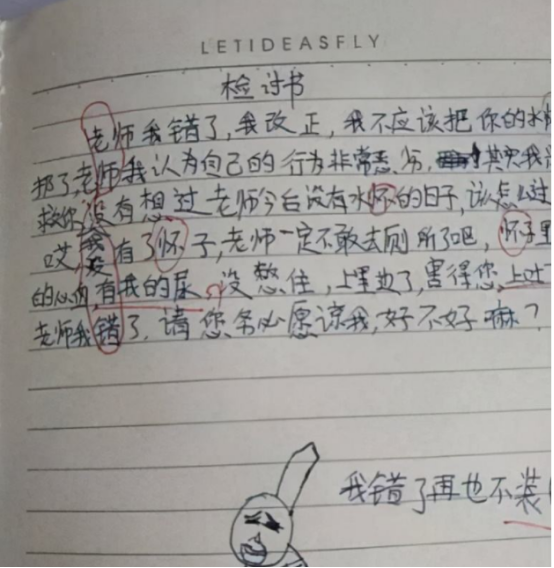 LETIDEASFLY
检讨书
老师我错了,我改正,我不应该把你的水
了老师我认为自己的行为非常恶劣,其实我
没有想过老师今后没有水怀的日子,该怎么过
哎,我没有了怀子,老师一定不敢去厕所了吧,怀子里
的心内,有我的尿,没憋住,上里边了,害得您,上吐
老师我错了,请您务必愿谅我,好不好嘛?
我错了再也不装